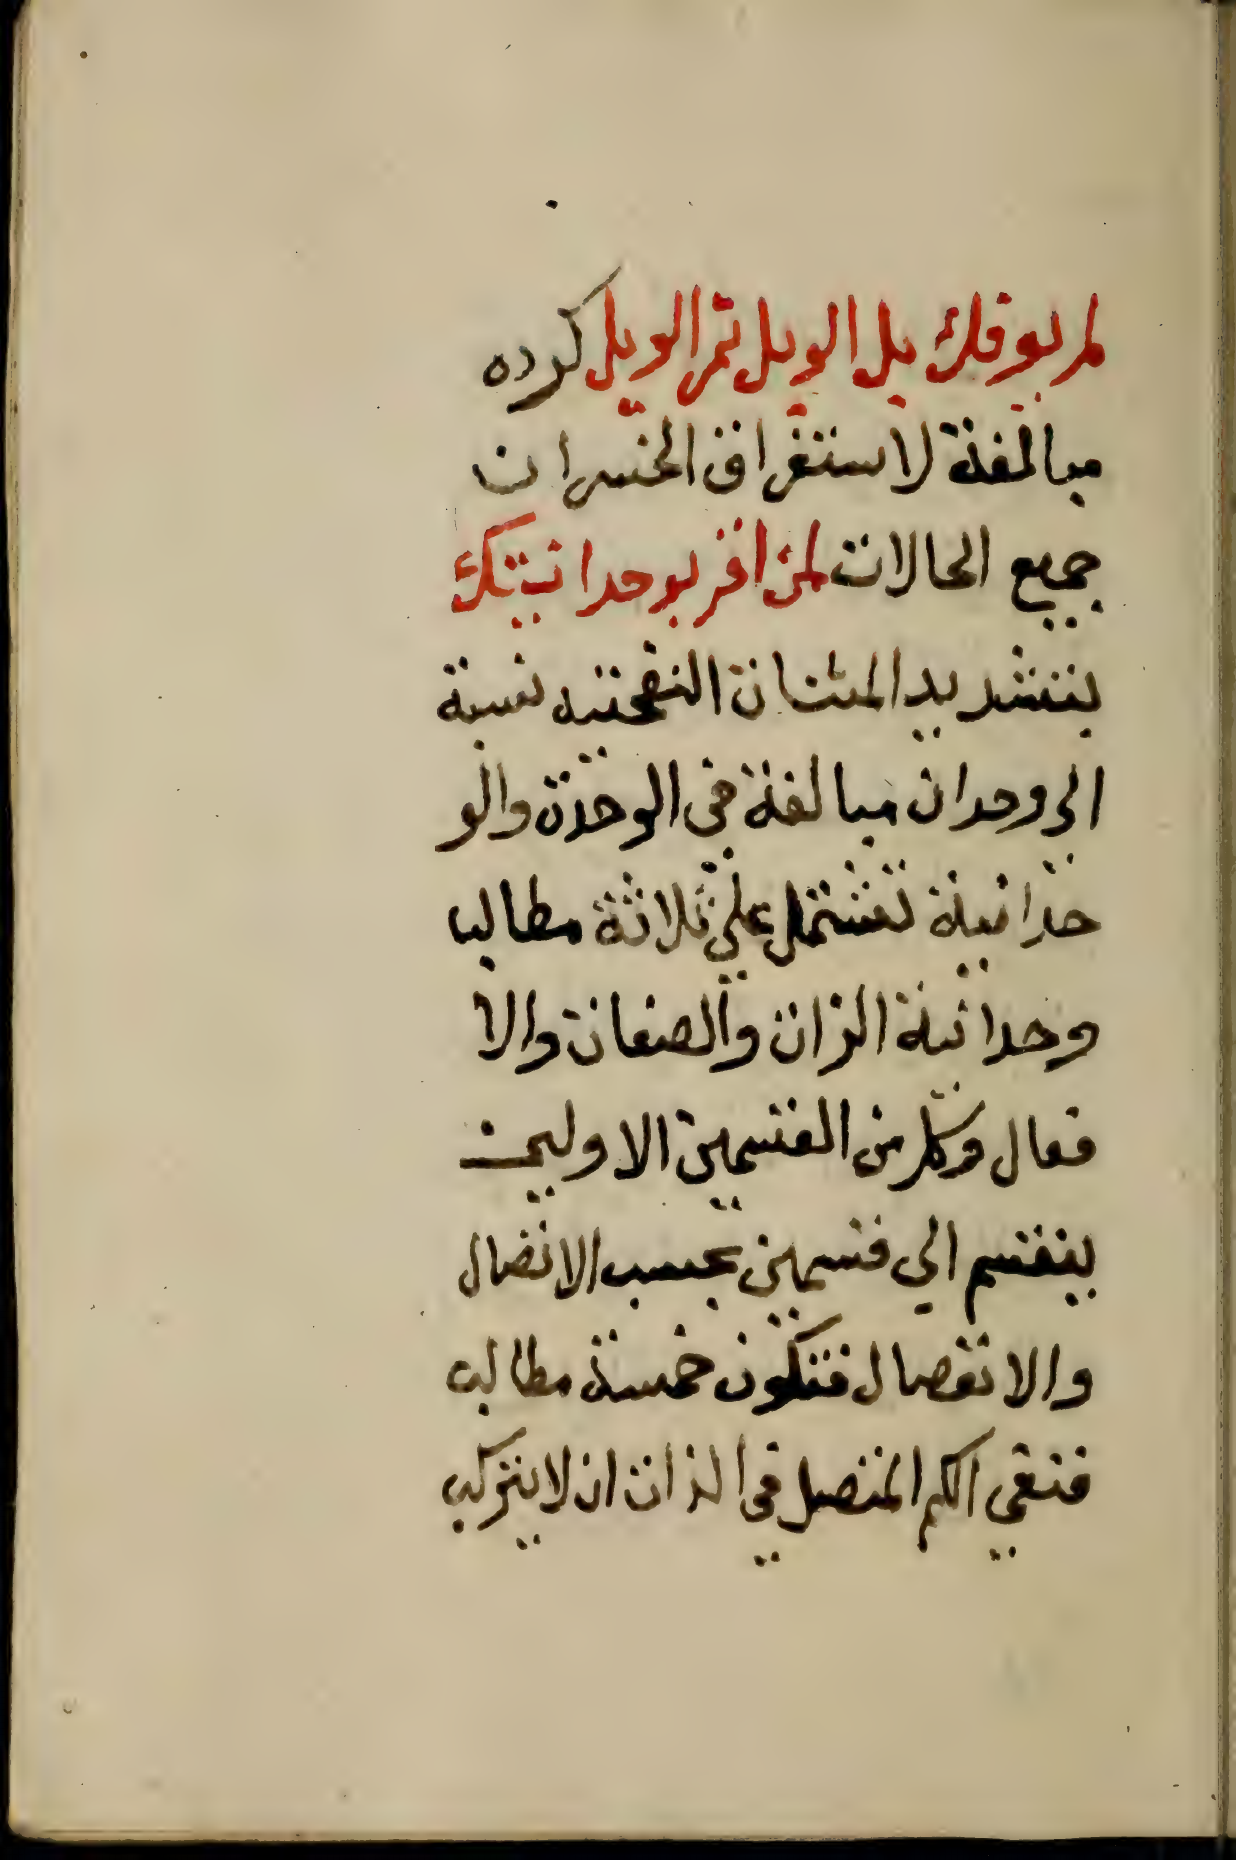 لم يعرفك بل الويل ثم الويل كرره
مبالغة لاستغراق الخسران
جميع الحالات لمن اقر بوحدانيتك
بتشديد المثناة التحتية نسبة
الى وحدان مبالغة في الوحدة والو
حدانية تشتمل على ثلاثة مطالب
وحدانية الذات والصفات والا
فعال وكل من القسمين الاولين
ينقسم الي قسمين بحسب الاتصال
والانفصال فتكون خمسة مطالب
فنفي الكم المتصل في الذات ان لا يتركب